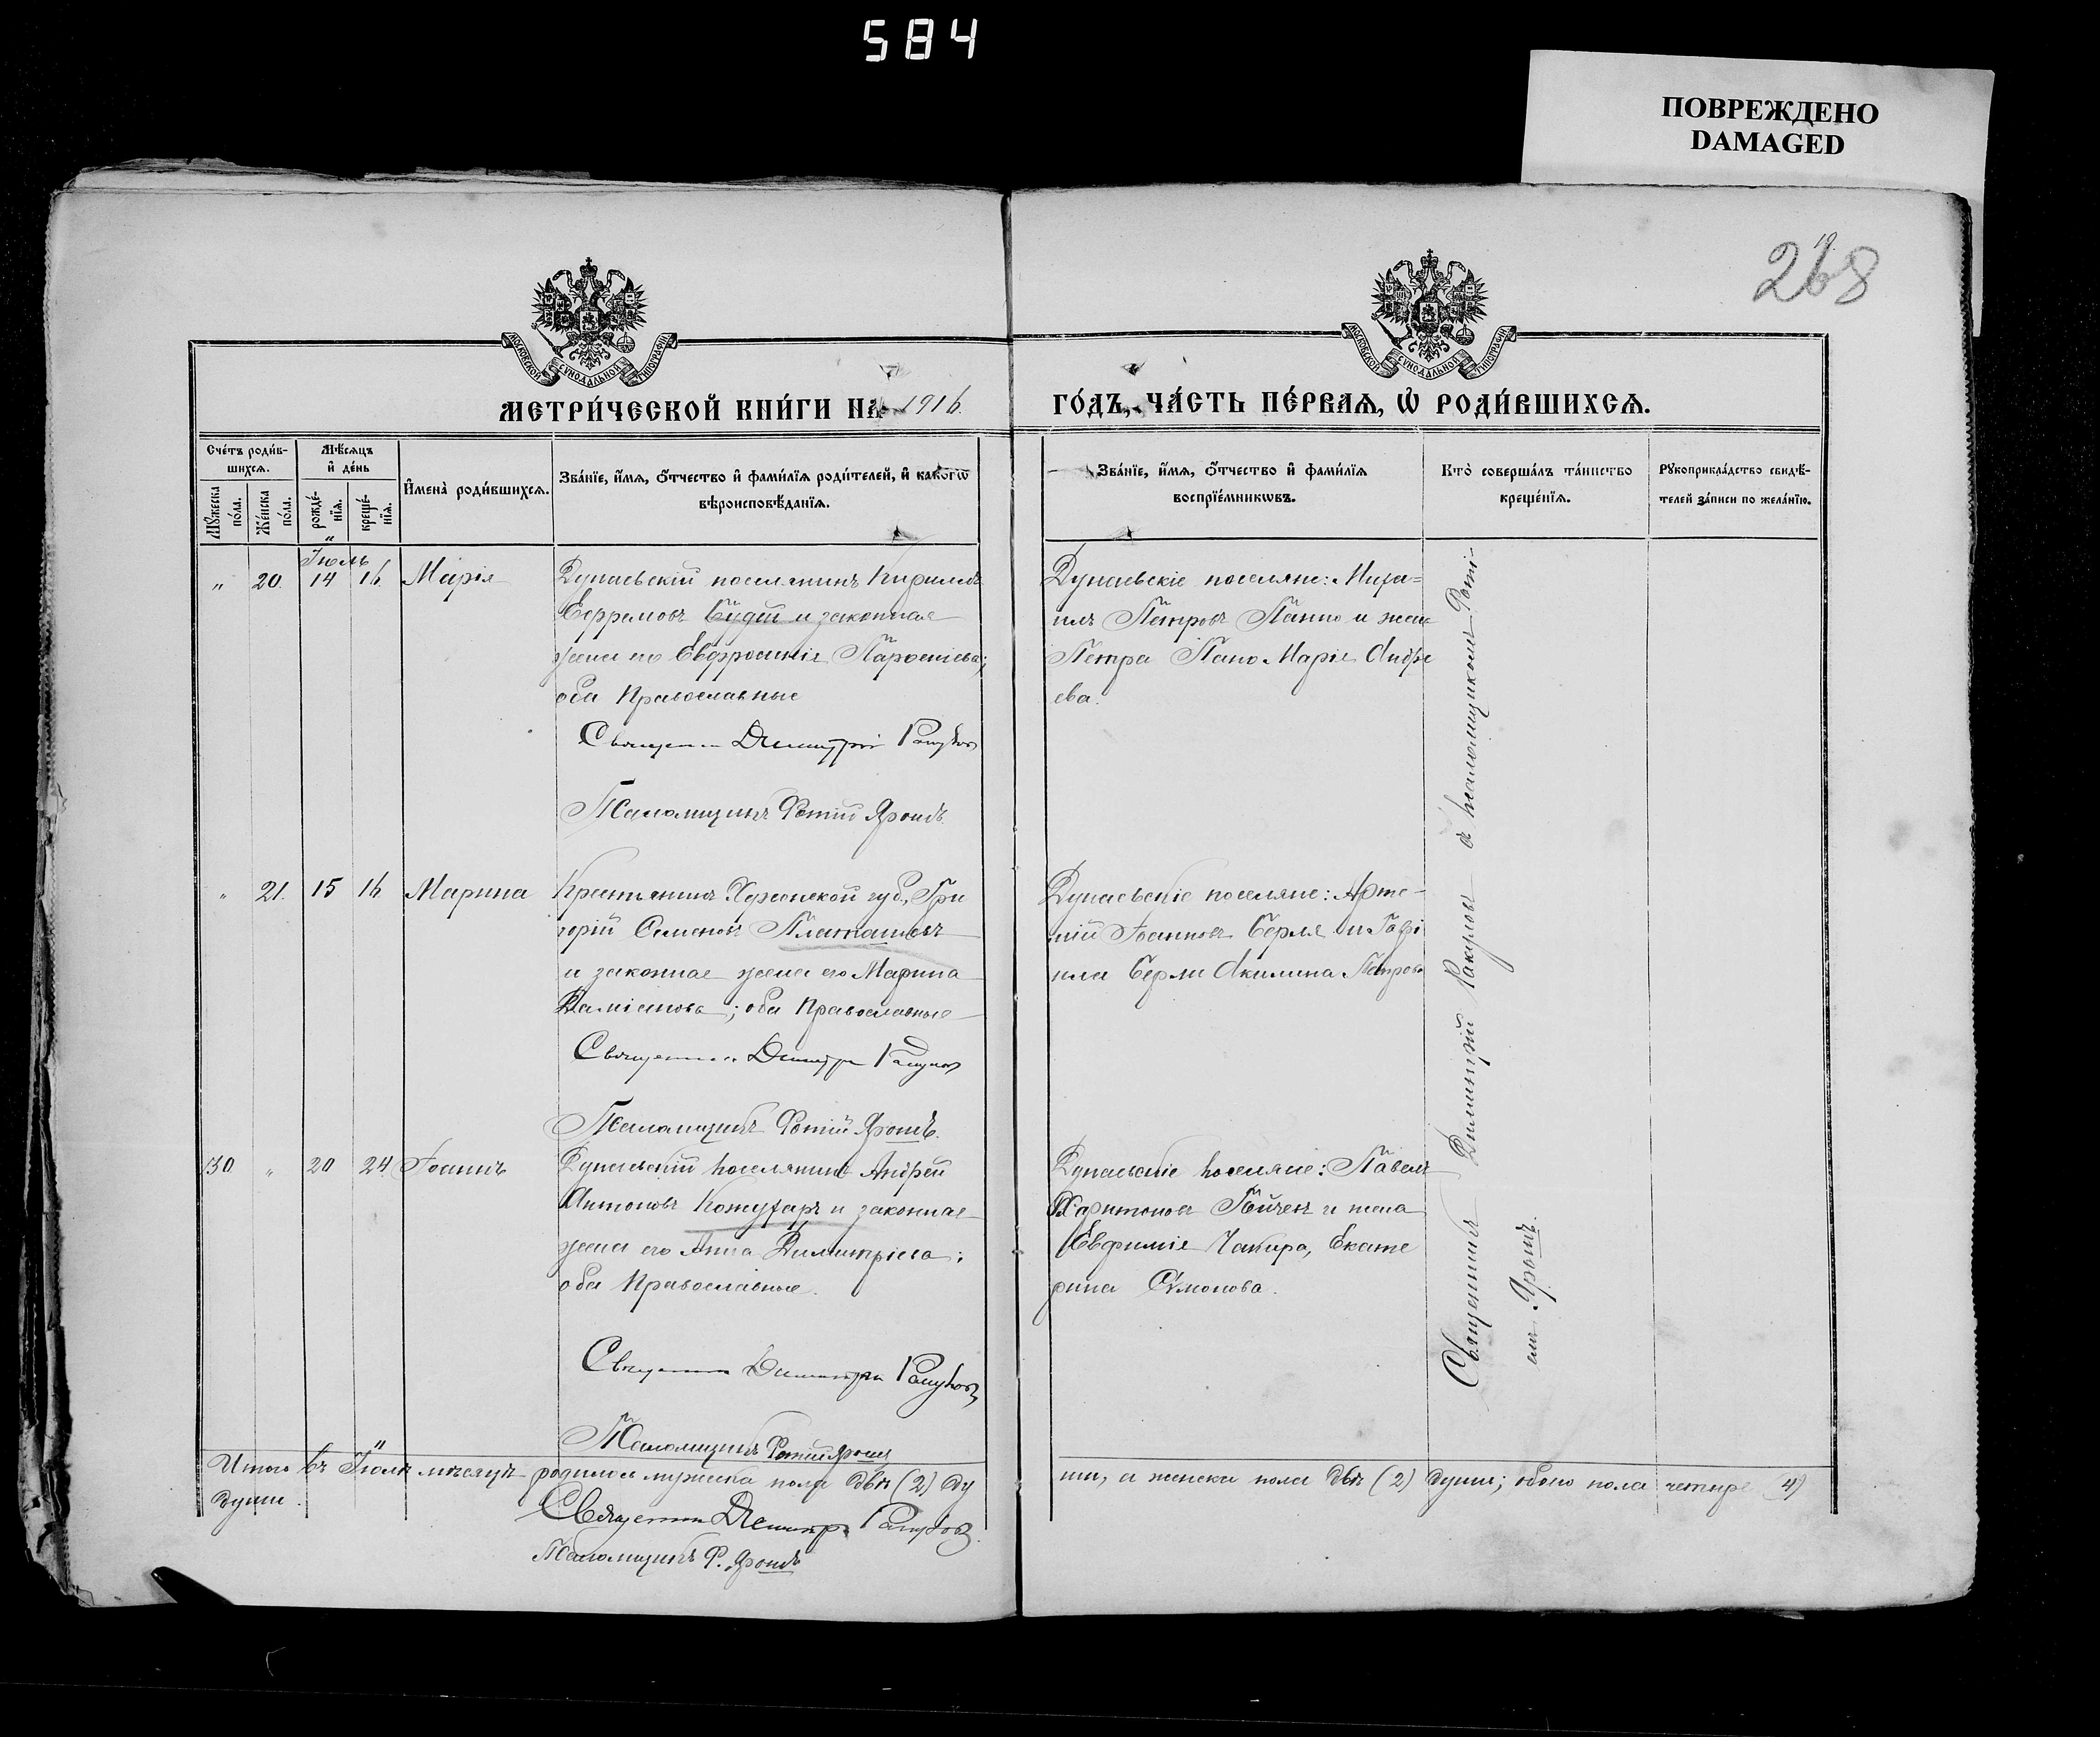 584
ПОВРЕЖДЕНО
DAMAGED
268
МОСКОВСКОЙ СѴНОДАЛЬНОЙ ТИПОГРАФІИ
МОСКОВСКОЙ СѴНОДАЛЬНОЙ ТИПОГРАФІИ
МЕТРИ́ЧЕСКОЙ КНИ́ГИ НА 1916.
ГО́ДЪ, ЧА́СТЬ ПЕ́РВАЯ, Ѡ҆ РОДИ́ВШИХСЯ.
Сче́тъ роди́в-
шихся.
Мꙋ́жеска по́ла.
Же́нска по́ла.
Мѣ́сяцъ
и҆ де́нь
рожде́-
нїя.
креще́-
нїя.
И҆мена̀ роди́вшихся.
Зва́нїе, и҆́мя, ѻ҆́тчество и҆ фами́лїя роди́телей, и҆ како́гѡ
вѣроисповѣ́данїя.
Зва́нїе, и҆́мя, ѻ҆́тчество и҆ фами́лїя
воспрїе́мникѡвъ.
Кто̀ соверша́лъ та́инство
креще́нїя.
Рꙋкоприкла́дство свидѣ́-
телей за́писи по жела́нїю.
Іюль
" 20. 14 16. Марія
Дунаевскій поселянинъ Кириллъ
Ефремовъ и законная
жена его Евфросинія
оба Православные
Священникъ Димитрій
Псаломщикъ Фотій Ярошъ.
Дунаевскіе поселяне: Миха=
илъ Петровъ Пано и жена
Петра Пано Марія Андре
ева.
" 21. 15 16. Марина
Крестьянинъ Херсонской губ., Гри
горій Семеновъ
и законная жена его Марина
Даміанова; оба Православные
Священникъ Димитрій
Псаломщикъ Фотій Ярошъ.
Дунаевскіе поселяне: Арте-
мій Іоанновъ Берля и Гаврі
ила Берли Акилина Петрова
30 " 20 24. Іоаннъ
Дунаевскій поселянинъ Андрей
Антоновъ Кожухаръ и законная
жена его Анна Димитріева;
оба Православные.
Священникъ Димитрій
Псаломщикъ Фотій Ярошъ
Дунаевскіе поселяне: Павелъ
Харитоновъ и жена
Евфимія Чакира, Екате
рина Симонова.
Священникъ Димитрій съ псаломщикомъ Фоті-
емъ Ярошъ.
Итого въ Іюлѣ мѣсяцѣ родилось мужеска пола двѣ (2) ду
ши, а женска пола двѣ (2) души; обоего пола четыре (4)
души.
Священникъ Димитрій
Псаломщикъ Ф. Ярошъ